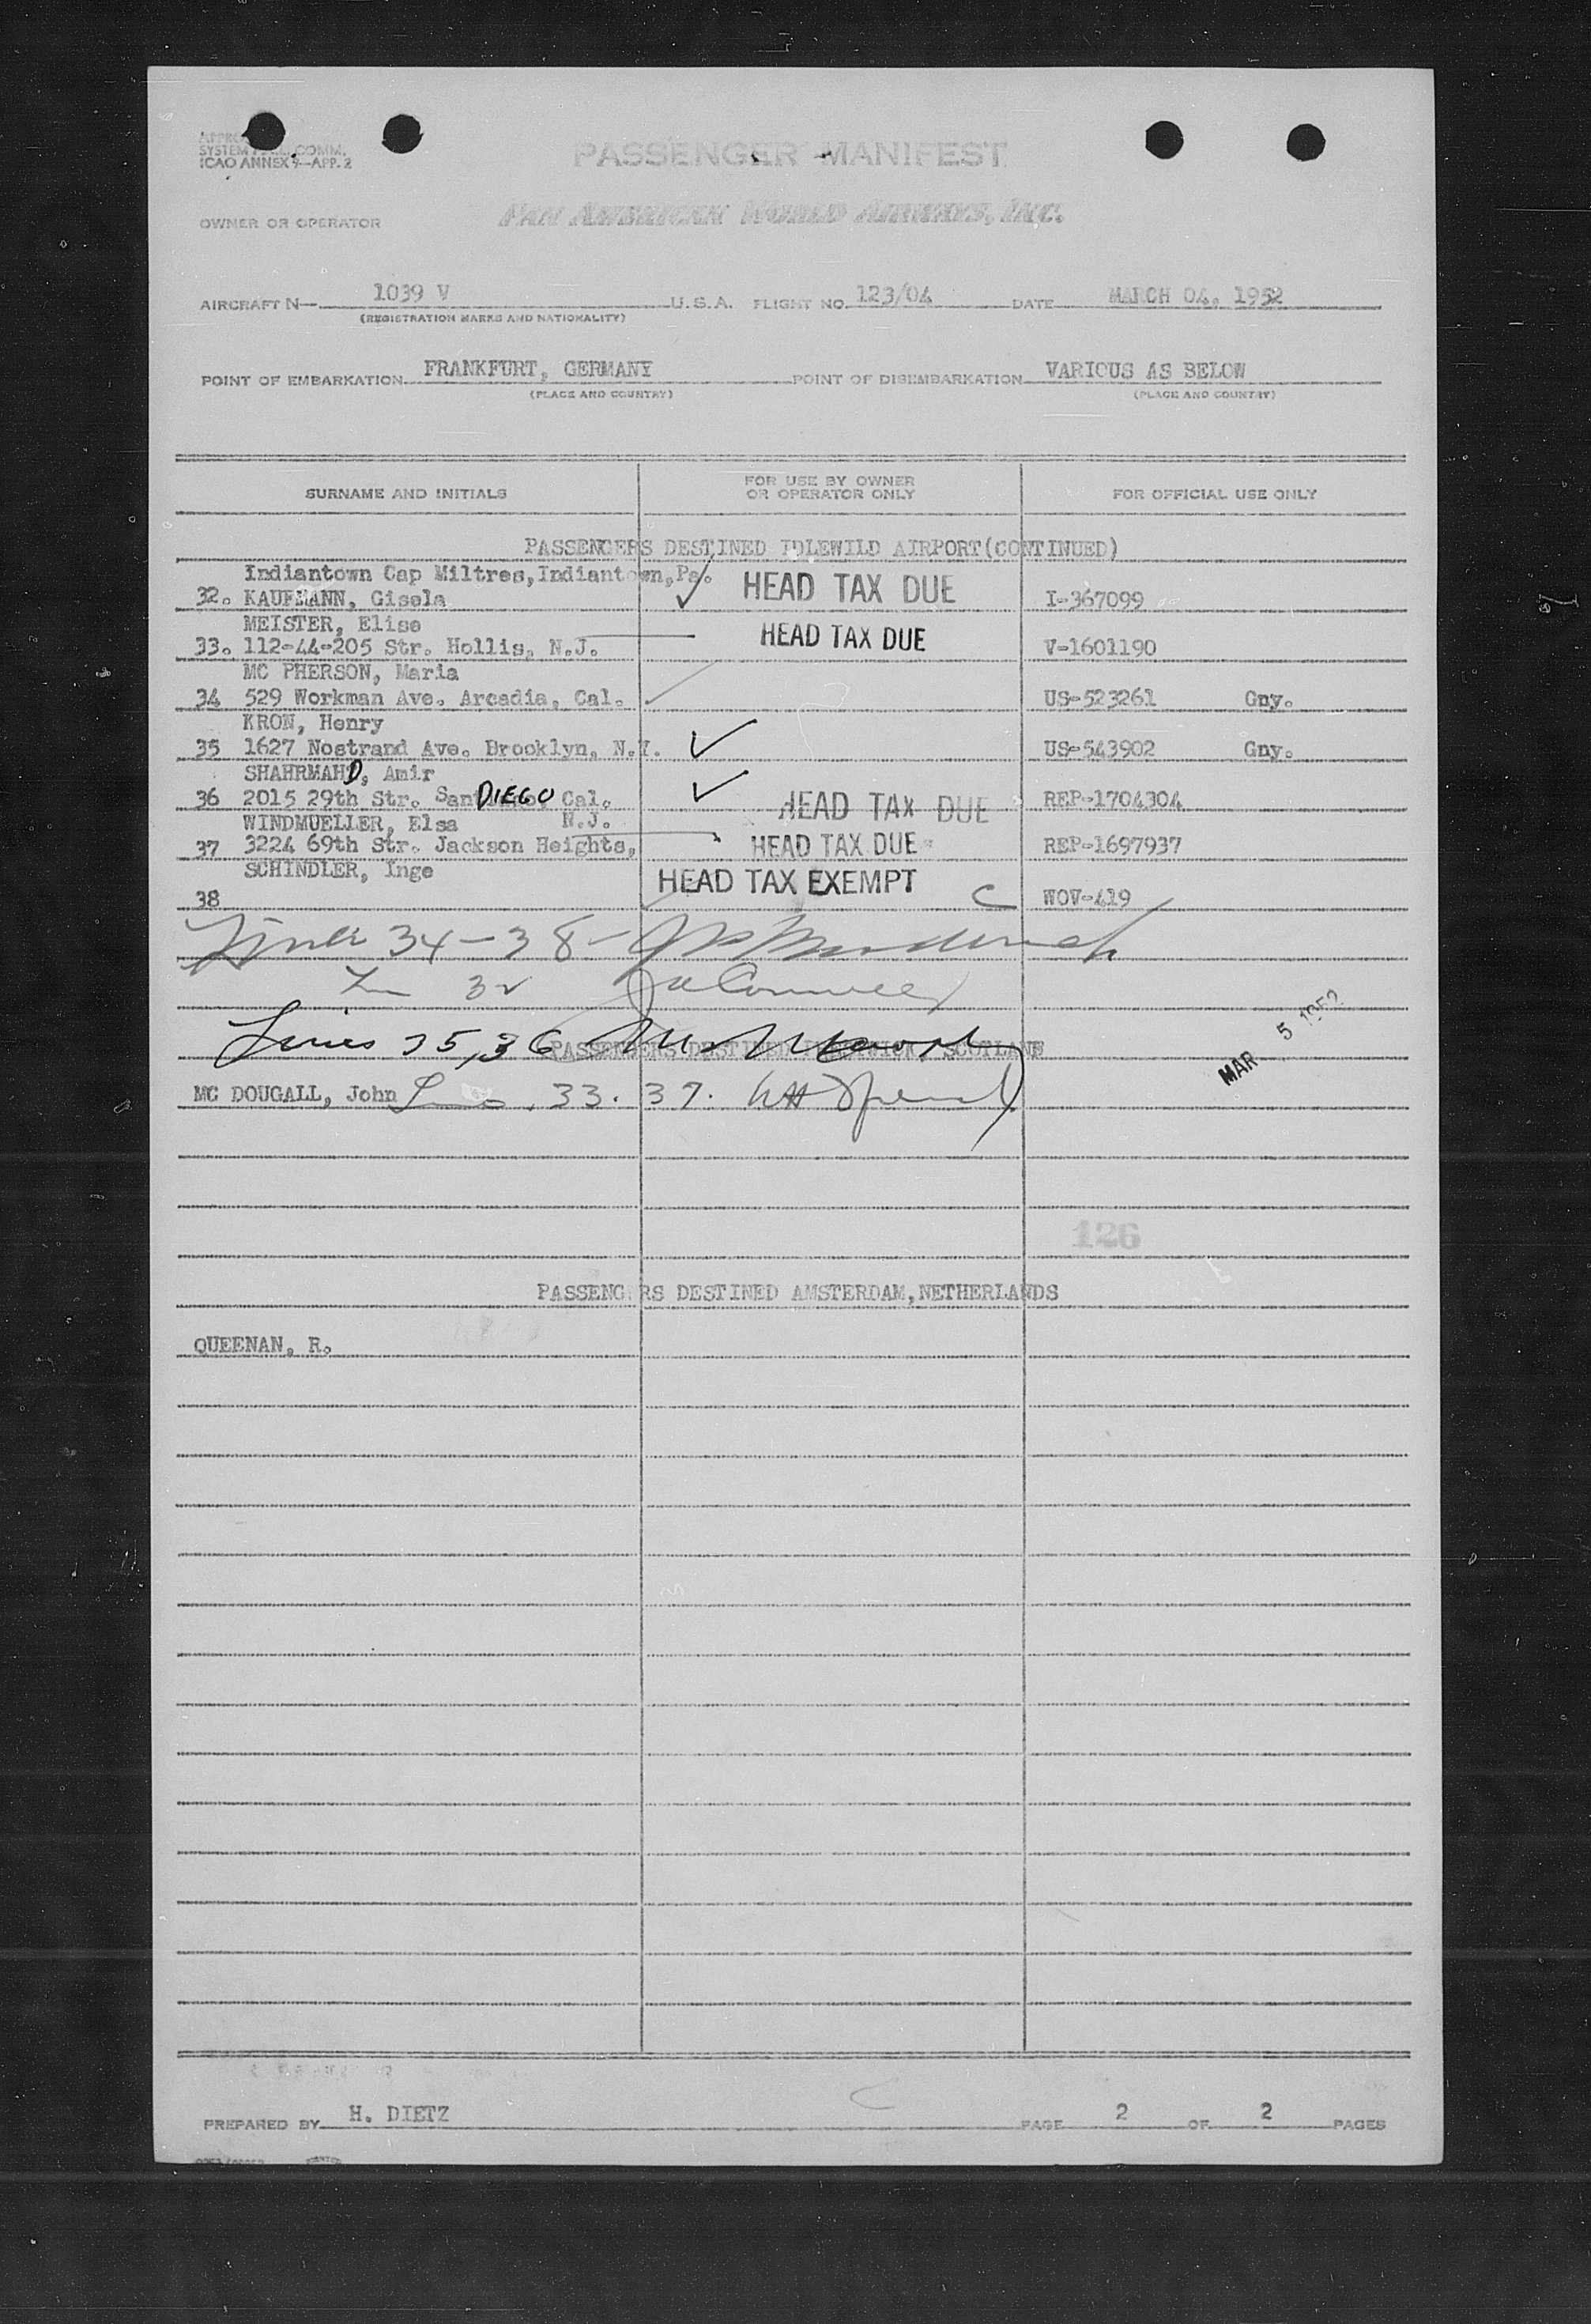 SYSTEM COMM.
ICAO ANNEX 9—APP. 2
PASSENGER MANIFEST
OWNER OR OPERATOR PAN AMERICAN WORLD AIRWAYS, INC.
AIRCRAFT N— 1039 V U. S. A. FLIGHT NO. 123/04 DATE MARCH 04, 1952
(REGISTRATION MARKS AND NATIONALITY)
POINT OF EMBARKATION FRANKFURT, GERMANY POINT OF DISEMBARKATION VARIOUS AS BELOW
(PLACE AND COUNTRY) (PLACE AND COUNTRY)
SURNAME AND INITIALS FOR USE BY OWNER OR OPERATOR ONLY FOR OFFICIAL USE ONLY
PASSENGERS DESTINED IDLEWILD AIRPORT(CONTINUED)
Indiantown Cap Miltres,Indiantown,Pa.
32. KAUFMANN, Gisela HEAD TAX DUE I-367099
MEISTER, Elise
33. 112-44-205 Str. Hollis, N.J. HEAD TAX DUE V-1601190
MC PHERSON, Maria
34 529 Workman Ave. Arcadia, Cal. US-523261 Gny.
KRON, Henry
35 1627 Nostrand Ave. Brooklyn, N.Y. US-543902 Gny.
SHAHRMAHD, Amir
36 2015 29th Str. San DIEGO Cal. HEAD TAX DUE REP-1704304
WINDMUELLER, Elsa N.J.
37 3224 69th Str. Jackson Heights, HEAD TAX DUE REP-1697937
SCHINDLER, Inge
38 HEAD TAX EXEMPT C WOV-419
34-38
32
Lines 35,36
PASSENGERS DESTINED PRESTWICK, SCOTLAND
MAR 5 1952
MC DOUGALL, John 33. 37.
126
PASSENGERS DESTINED AMSTERDAM,NETHERLANDS
QUEENAN, R.
PREPARED BY H. DIETZ PAGE 2 OF 2 PAGES